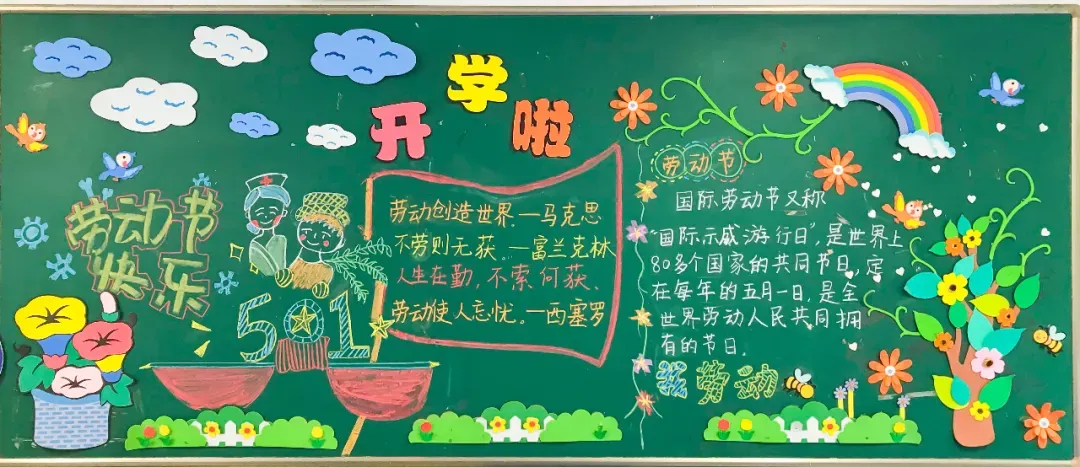 开学啦
劳动节
快乐
501
劳动创造世界.—马克思
不劳则无获.—富兰克林
人生在勤,不索何获.
劳动使人忘忧.—西塞罗
劳动节
国际劳动节又称
“国际示威游行日”,是世界上
80多个国家的共同节日,定
在每年的五月一日,是全
世界劳动人民共同拥
有的节日.
爱劳动